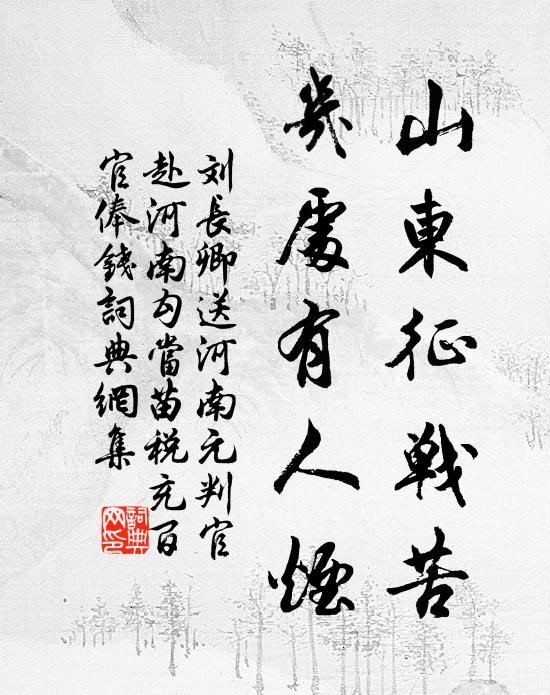 山東征戰苦
幾處有人煙
刘長卿送河南元判官
赴河南勾當苗税充百
官俸錢詞典網集
詞典網印